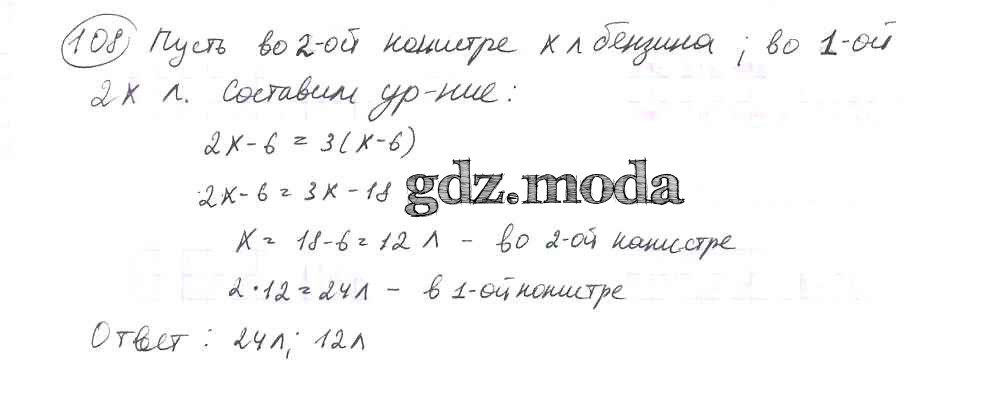 108) Пусть во 2-ой канистре x л бензина; во 1-ой
2x л. Составим ур-ние:
2x-6 = 3(x-6)
2x-6 = 3x-18
gdz.moda
x = 18-6=12 л - во 2-ой канистре
2·12=24л - в 1-ой канистре
Ответ: 24л; 12л